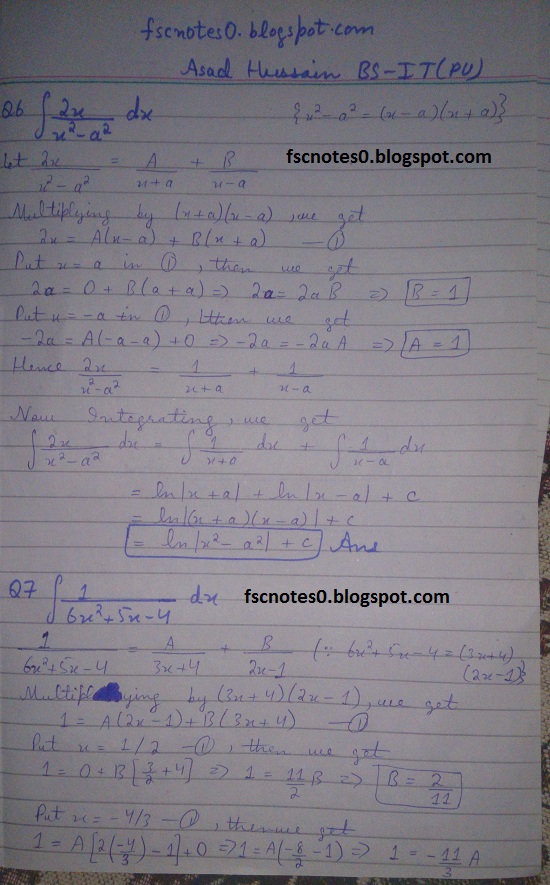 fscnotes0.blogspot.com
Asad Hussain BS-IT(PU)
Q6 ∫ 2x/(x²-a²) dx {x²-a² = (x-a)(x+a)}
Let 2x/(x²-a²) = A/(x+a) + B/(x-a) fscnotes0.blogspot.com
Multiplying by (x+a)(x-a), we get
2x = A(x-a) + B(x+a) —①
Put x=a in ①, then we get
2a = 0 + B(a+a) ⇒ 2a = 2aB ⇒ B = 1
Put x=-a in ①, then we get
-2a = A(-a-a) + 0 ⇒ -2a = -2aA ⇒ A = 1
Hence 2x/(x²-a²) = 1/(x+a) + 1/(x-a)
Now Integrating, we get
∫ 2x/(x²-a²) dx = ∫ 1/(x+a) dx + ∫ 1/(x-a) dx
= ln|x+a| + ln|x-a| + c
= ln|(x+a)(x-a)| + c
= ln|x²-a²| + c Ans
Q7 ∫ 1/(6x²+5x-4) dx fscnotes0.blogspot.com
1/(6x²+5x-4) = A/(3x+4) + B/(2x-1) {∵ 6x²+5x-4 = (3x+4)
(2x-1)}
Multiplying by (3x+4)(2x-1), we get
1 = A(2x-1) + B(3x+4) —①
Put x = 1/2 —①, then we get
1 = 0 + B[3/2 + 4] ⇒ 1 = 11/2 B ⇒ B = 2/11
Put x = -4/3 —①, then we get
1 = A[2(-4/3) - 1] + 0 ⇒ 1 = A(-8/3 - 1) ⇒ 1 = -11/3 A